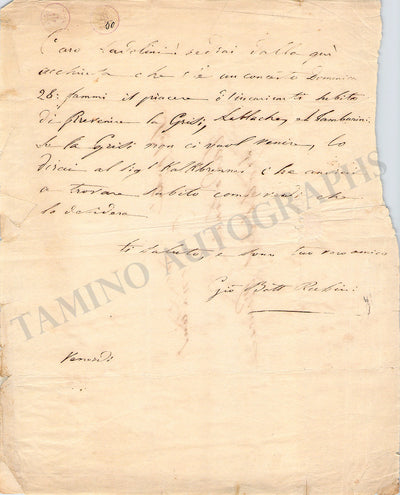 50
Caro Tadolini! Vedrai dalla qui
acchiusa che c'è un concerto Domenica
28: fammi il piacere d'incaricarti subito
di prevenire la Grisi, Lablache, e Tamburini.
Se la Grisi non ci vuol venire, lo
dirai al Sigr Kalkbrenner che
a trovare subito che
la desidera.
ti saluto e sono tuo vero amico
Gio Batt Rubini
Venerdi
TAMINO AUTOGRAPHS